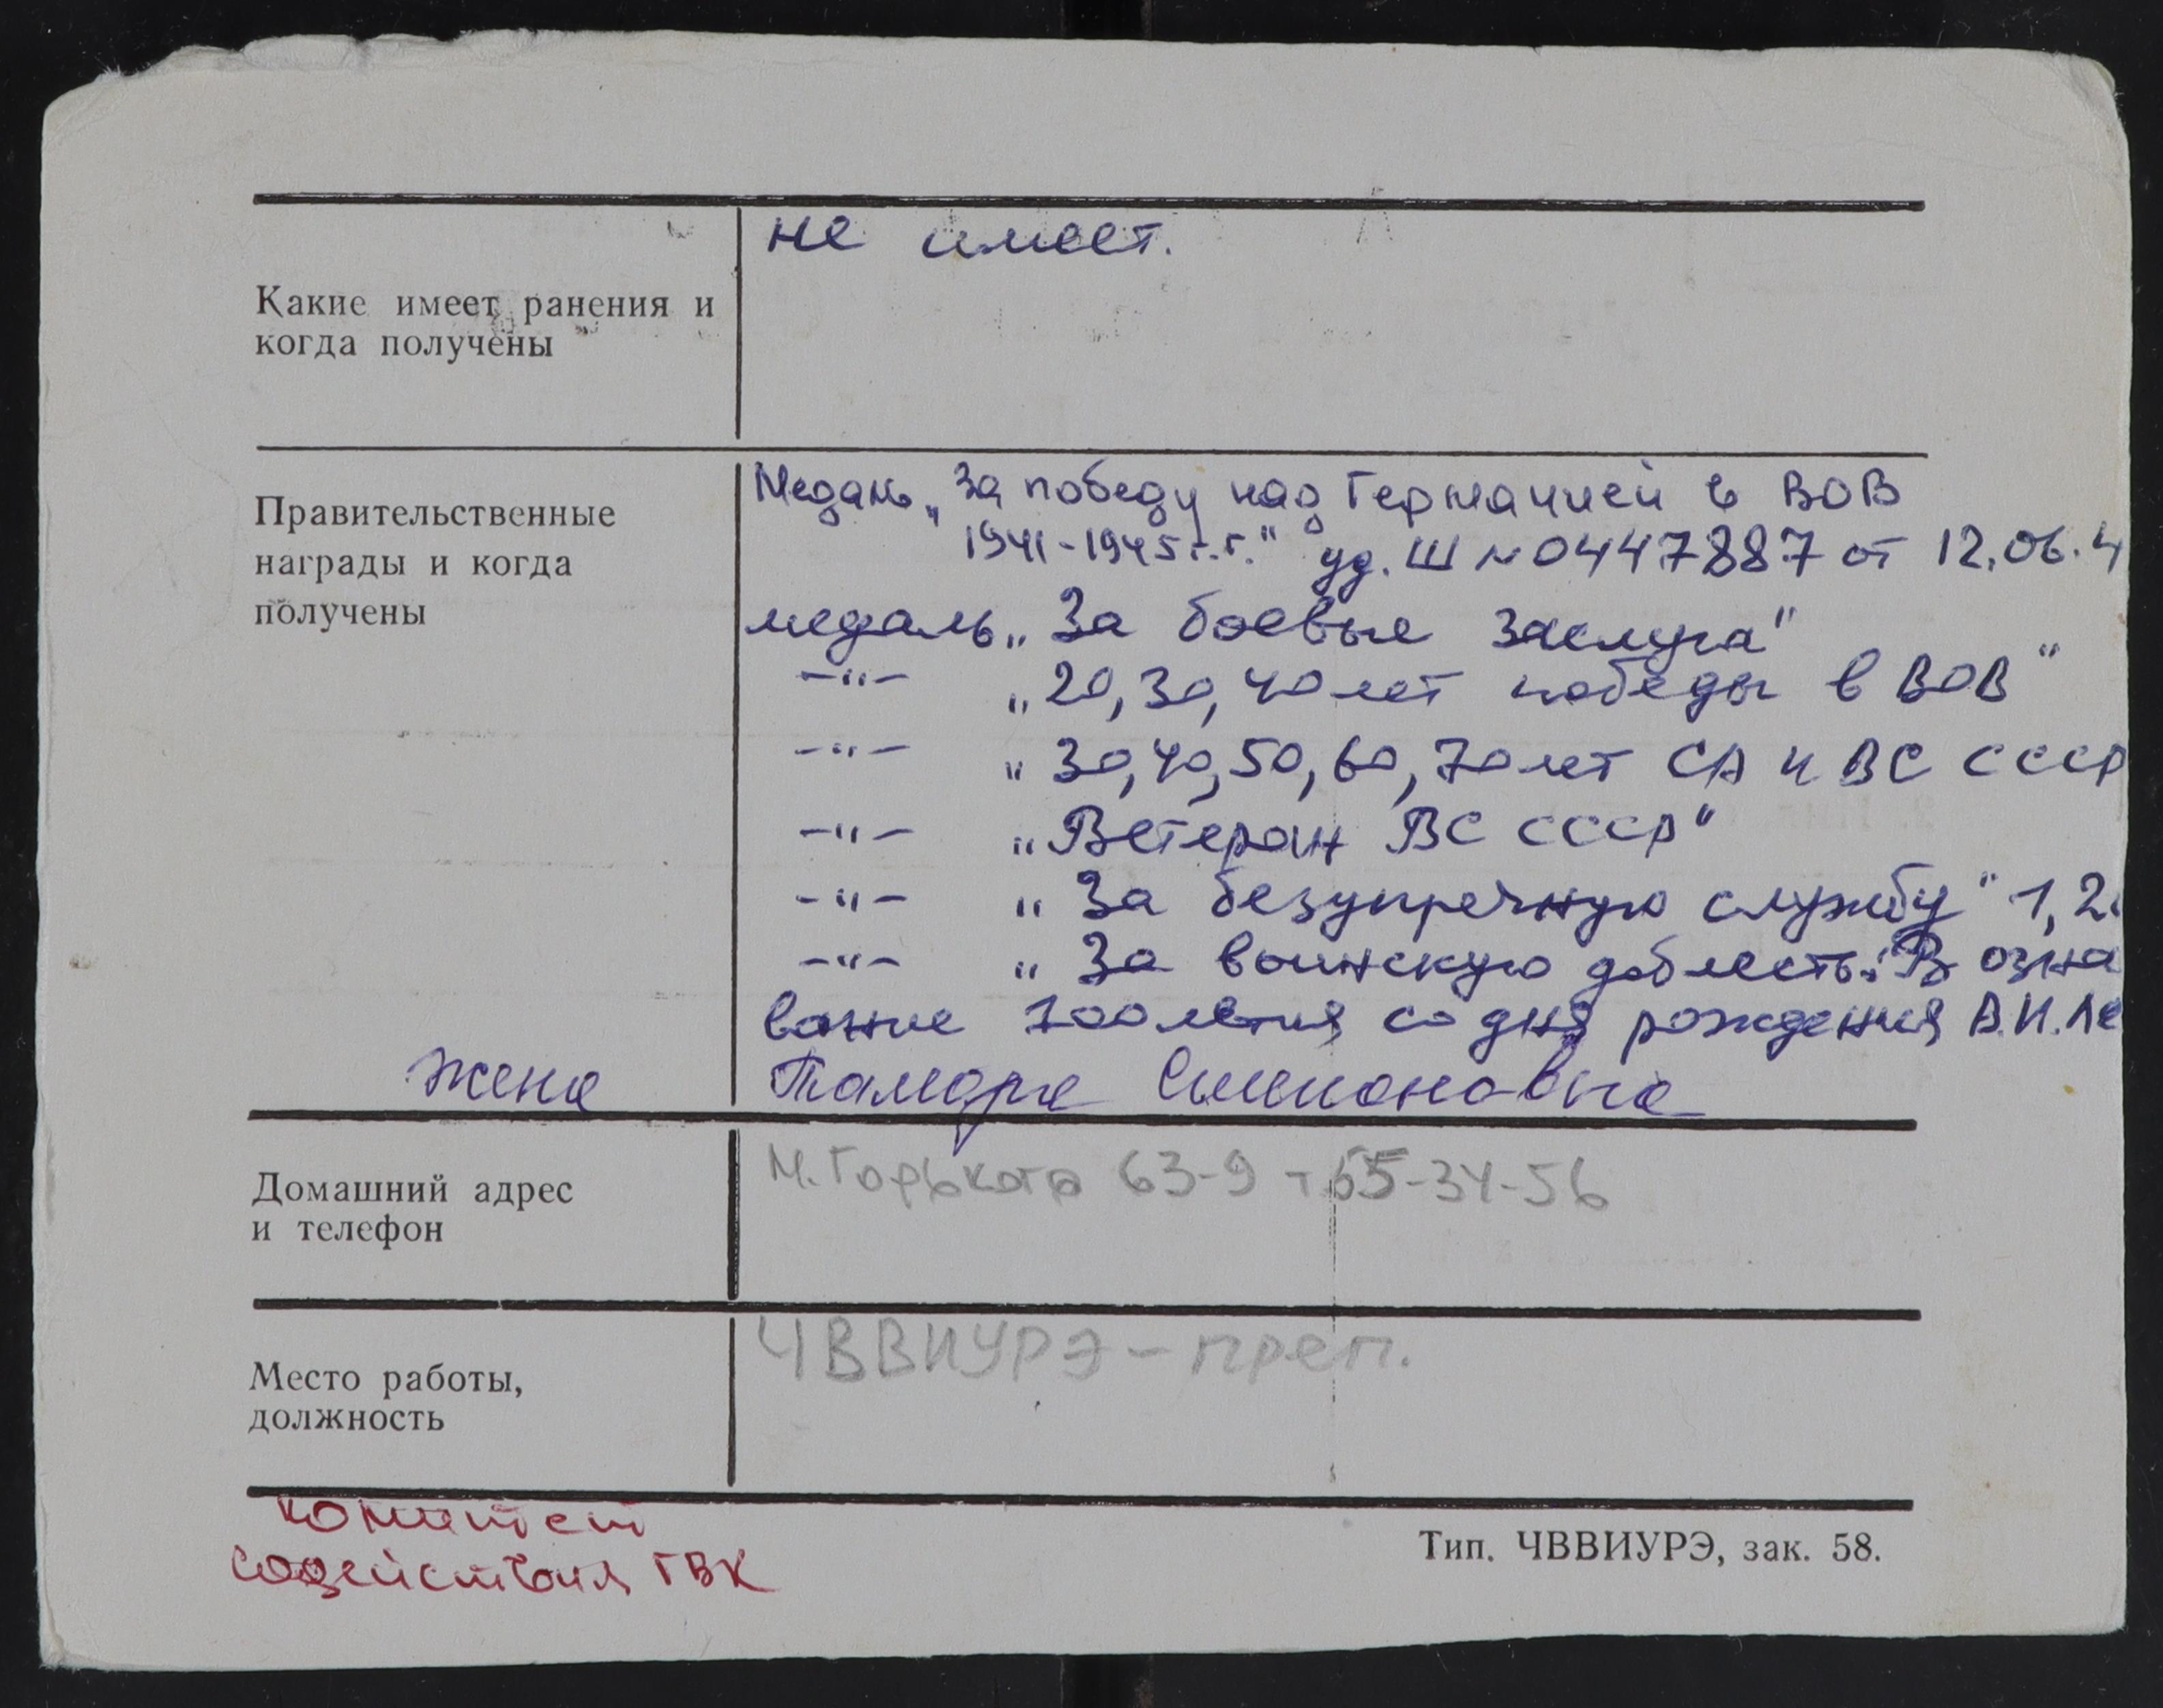 не имеет.
Какие имеет ранения и
когда получены
Правительственные
награды и когда
получены
Медаль „За победу над Германией в ВОВ
1941-1945 г.г." уд. Ш № 0447887 от 12.06.4
медаль „За боевые заслуга"
-"- „20, 30, 40 лет победы в ВОВ"
-"- „30, 40, 50, 60, 70 лет СА и ВС СССР
-"- „Ветеран ВС СССР"
-"- „За безупречную службу" 1, 2
-"- „За воинскую доблесть. В озна
вание 100летия со дня рождения В.И. Ле
жена Тамара Симионовна
Домашний адрес
и телефон
М. Горького 63-9 т 55-34-56
Место работы,
должность
ЧВВИУРЭ - преп.
комитет
содействия ГВК
Тип. ЧВВИУРЭ, зак. 58.